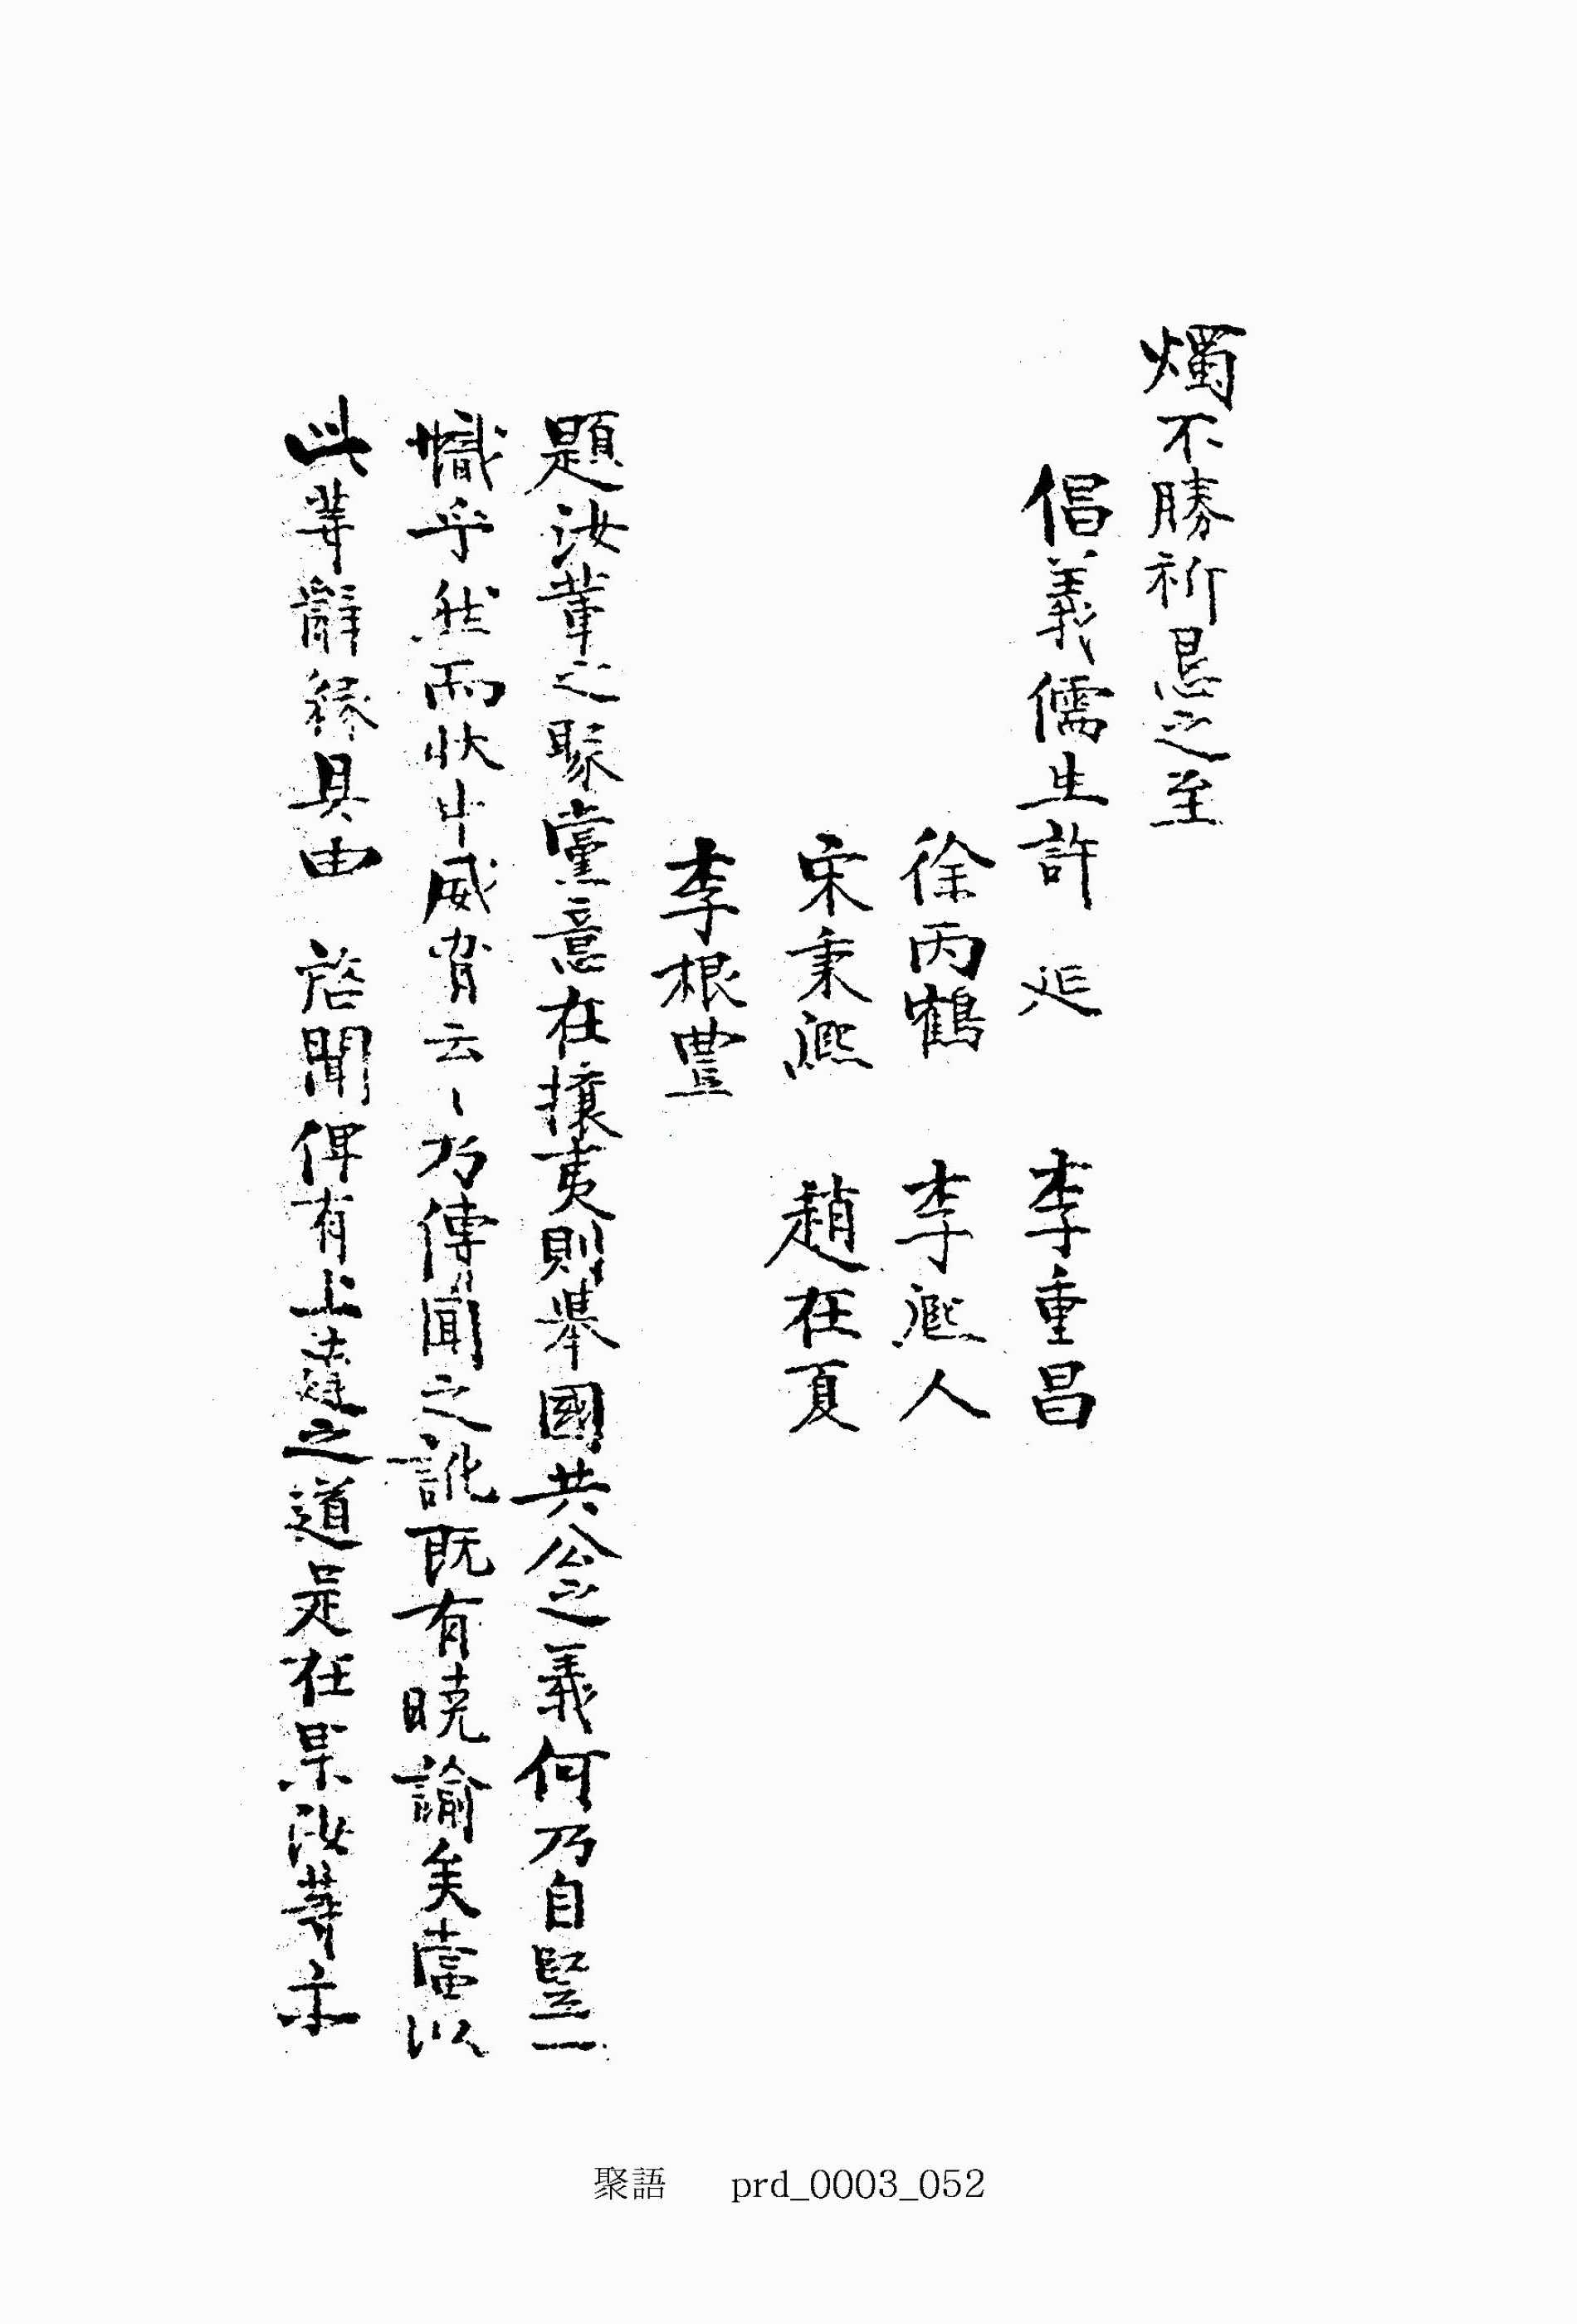 燭不勝祈恳之至
倡義儒生許 延 李重昌
徐丙鶴 李熙人
宋秉熙 趙在夏
李根豊
題汝輩之聚黨意在攘夷則舉國共公之義何乃自竪一
幟乎然而狀中威脅云〻乃傳聞之訛既有曉諭矣當以
此等辭緣具由 啓聞俾有上達之道是在果汝等亦
聚語 prd_0003_052